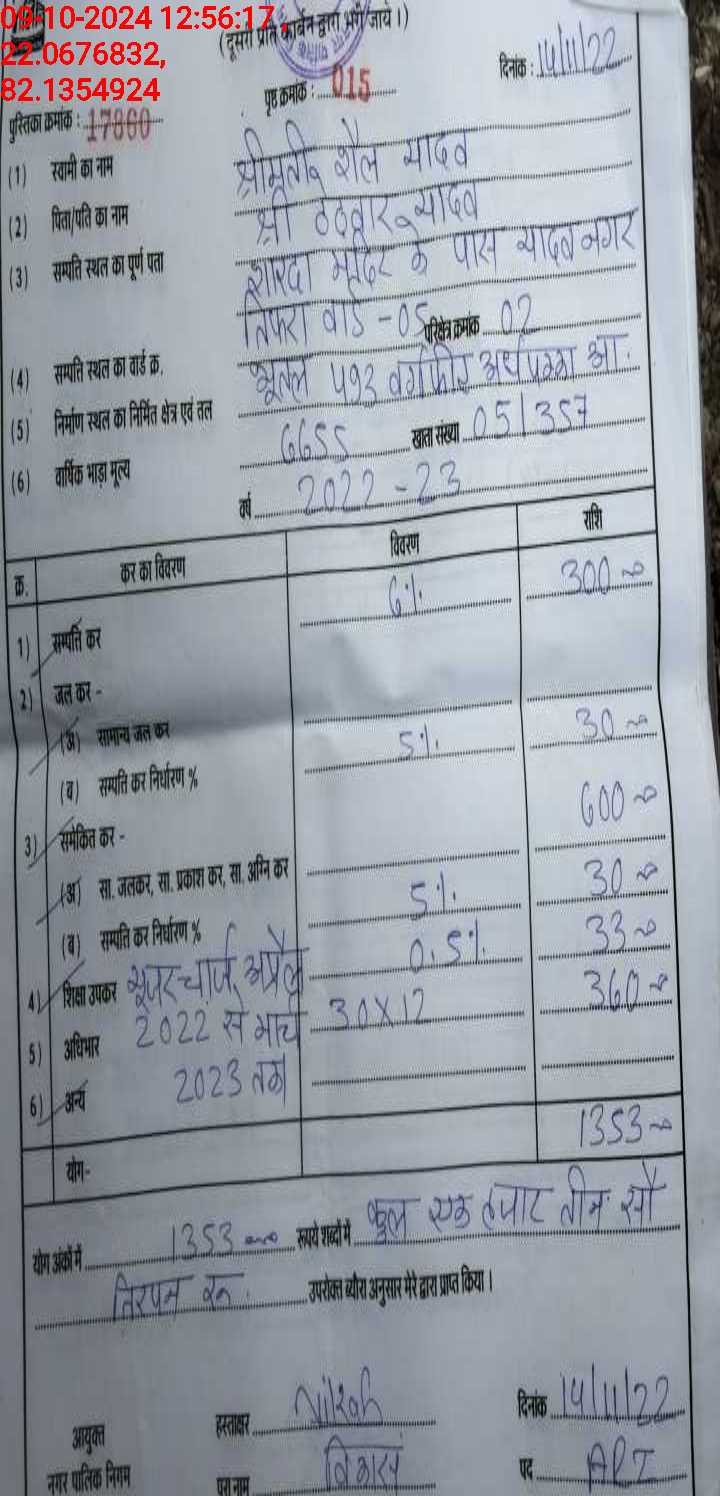 09-10-2024 12:56:17
22.0676832,
82.1354924
(दूसरी प्रति कार्बन द्वारा भरी जाये।)
दिनांक : 14/11/22
पृष्ठ क्रमांक : 015
पुस्तिका क्रमांक : 17860
(1) स्वामी का नाम श्रीमती शैल यादव
(2) पिता/पति का नाम श्री ठेठवार यादव
(3) सम्पति स्थल का पूर्ण पता शारदा मंदिर के पास यादव नगर
तिफरा वार्ड - 05 परिक्षेत्र क्रमांक 02
(4) सम्पति स्थल का वार्ड क्र.
(5) निर्माण स्थल का निर्मित क्षेत्र एवं तल भूतल 493 वर्गफीट अर्धपक्का आ.
(6) वार्षिक भाड़ा मूल्य 6655 खाता संख्या 05/357
वर्ष 2022-23
क्र. कर का विवरण विवरण राशि
1) सम्पति कर 6% 300
2) जल कर -
(अ) सामान्य जल कर
(ब) सम्पति कर निर्धारण % 5% 30
3) समेकित कर - 600
(अ) सा. जलकर, सा. प्रकाश कर, सा. अग्नि कर
(ब) सम्पति कर निर्धारण % 5% 30
4) शिक्षा उपकर 0.5% 33
यूजर चार्ज अप्रैल
5) अधिभार 2022 से मार्च 30X12 360
6) अन्य 2023 तक
योग- 1353
योग अंकों में 1353 रूपये शब्दों में कुल एक हजार तीन सौ
तिरपन रू. उपरोक्त ब्यौरा अनुसार मेरे द्वारा प्राप्त किया।
हस्ताक्षर दिनांक 14/11/22
आयुक्त
नगर पालिक निगम पूरा नाम विकास पद ARI